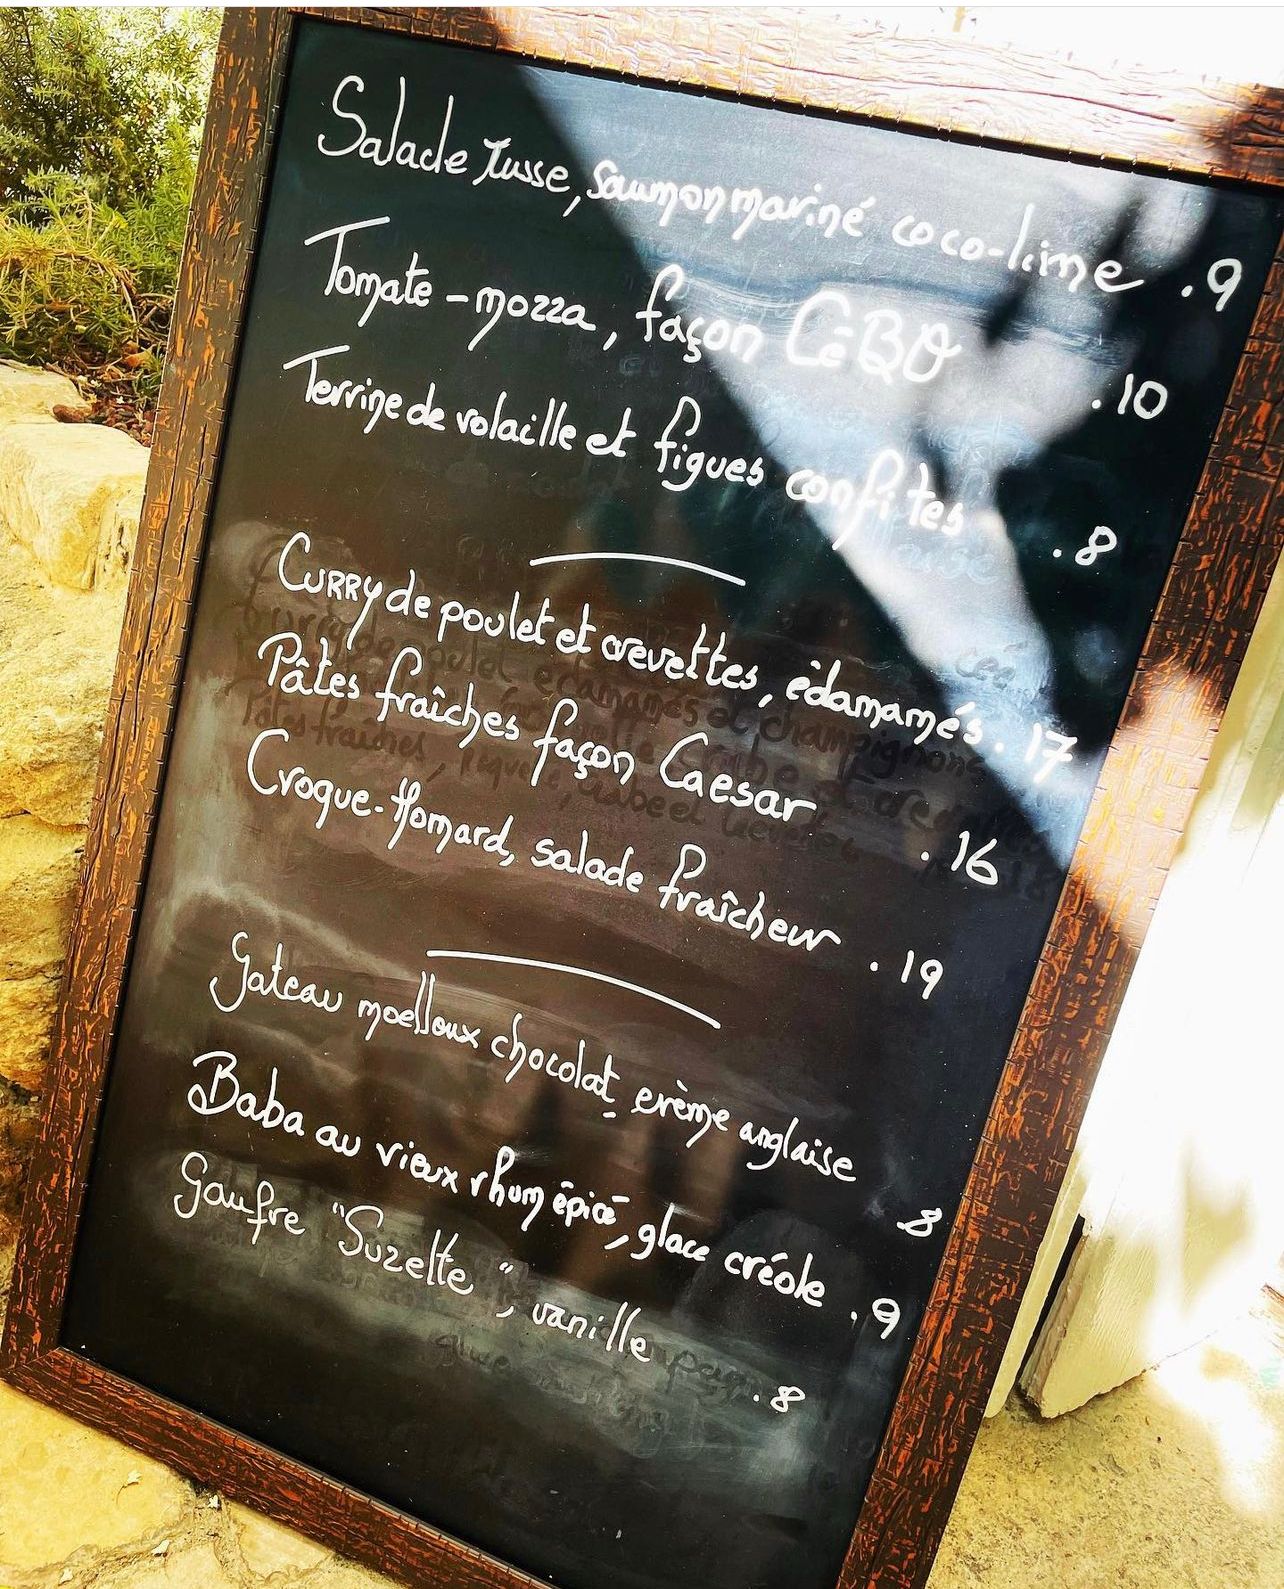 Salade russe, saumon mariné coco-lime .9
Tomate-mozza, façon CéBO .10
Terrine de volaille et figues confites .8
CURRY de poulet et crevettes, édamamés .17
Pâtes fraîches façon Caesar .16
Croque-Homard, salade fraîcheur .19
Gateau moelleux chocolat, crème anglaise 8
Baba au vieux rhum épicé, glace créole .9
Gaufre "Suzette", vanille .8